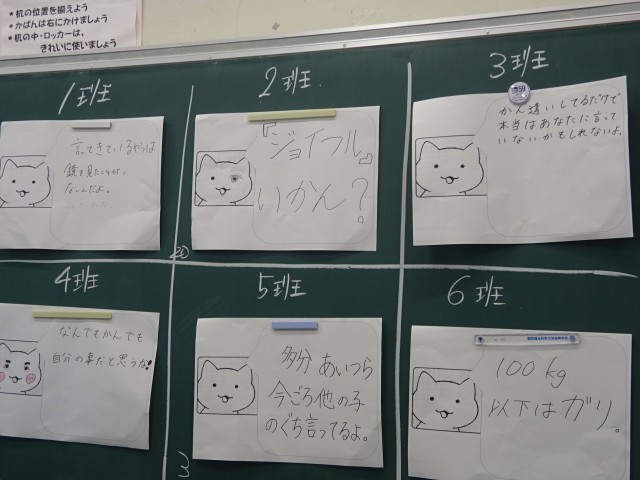 * 机の位置を揃えよう
* かばんは右にかけましょう
* 机の中・ロッカーは、
きれいに使いましょう
1班
言ってきているやつは
鏡を見たことが、
なーんだよ。
2班
『ジョイフル』
いかん?
3班
かん違いしてるだけで
本当はあなたに言って
いないかもしれないよ。
4班
なんでもかんでも
自分の事だと思うな!
5班
多分あいつら
今ごろ他の子
のぐち言ってるよ。
6班
100kg
以下はガリ。